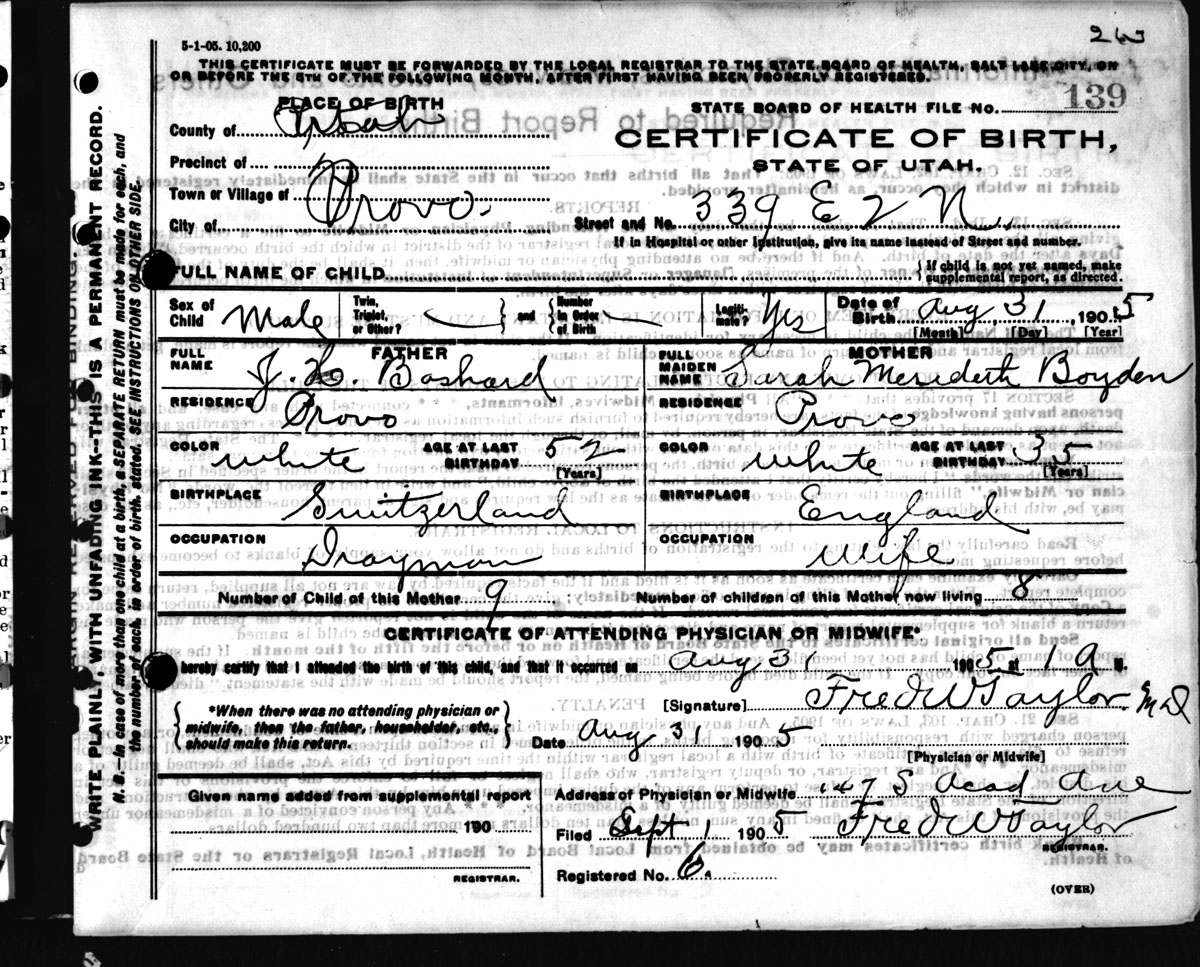 2W
5-1-05. 10,200
THIS CERTIFICATE MUST BE FORWARDED BY THE LOCAL REGISTRAR TO THE STATE BOARD OF HEALTH, SALT LAKE CITY, ON
OR BEFORE THE 5TH OF THE FOLLOWING MONTH, AFTER FIRST HAVING BEEN PROPERLY REGISTERED.
PLACE OF BIRTH
STATE BOARD OF HEALTH FILE No. 139
County of Utah
CERTIFICATE OF BIRTH,
Precinct of
STATE OF UTAH.
Town or Village of Provo.
City of
Street and No. 339 E 2 N.
If in Hospital or other Institution, give its name instead of Street and number.
FULL NAME OF CHILD
If child is not yet named, make supplemental report, as directed.
Sex of Child Male
Twin, Triplet, or Other? and Number in Order of Birth
Legiti- mate? Yes
Date of Birth Aug 31 1905
[Month] [Day] [Year]
FATHER
FULL NAME J. H. Boshard
RESIDENCE Provo
COLOR White AGE AT LAST BIRTHDAY 52 [Years]
BIRTHPLACE Switzerland
OCCUPATION Drayman
MOTHER
FULL MAIDEN NAME Sarah Meredeth Boyden
RESIDENCE Provo
COLOR White AGE AT LAST BIRTHDAY 35 [Years]
BIRTHPLACE England
OCCUPATION Wife
Number of Child of this Mother 9 Number of children of this Mother now living 8
CERTIFICATE OF ATTENDING PHYSICIAN OR MIDWIFE*
hereby certify that I attended the birth of this child, and that it occurred on Aug 31 1905 at 1 A M.
*When there was no attending physician or midwife, then the father, householder, etc., should make this return.
[Signature] Fred W Taylor M D
Date Aug 31 1905
[Physician or Midwife]
Given name added from supplemental report
190
REGISTRAR.
Address of Physician or Midwife 147 S Acad Ave
Filed Sept 1 1905 Fred W Taylor
REGISTRAR.
Registered No. 6.
(OVER)
WRITE PLAINLY, WITH UNFADING INK--THIS IS A PERMANENT RECORD.
N. B.--In case of more than one child at a birth, a SEPARATE RETURN must be made for each, and
the number of each, in order of birth, stated. SEE INSTRUCTIONS ON OTHER SIDE.